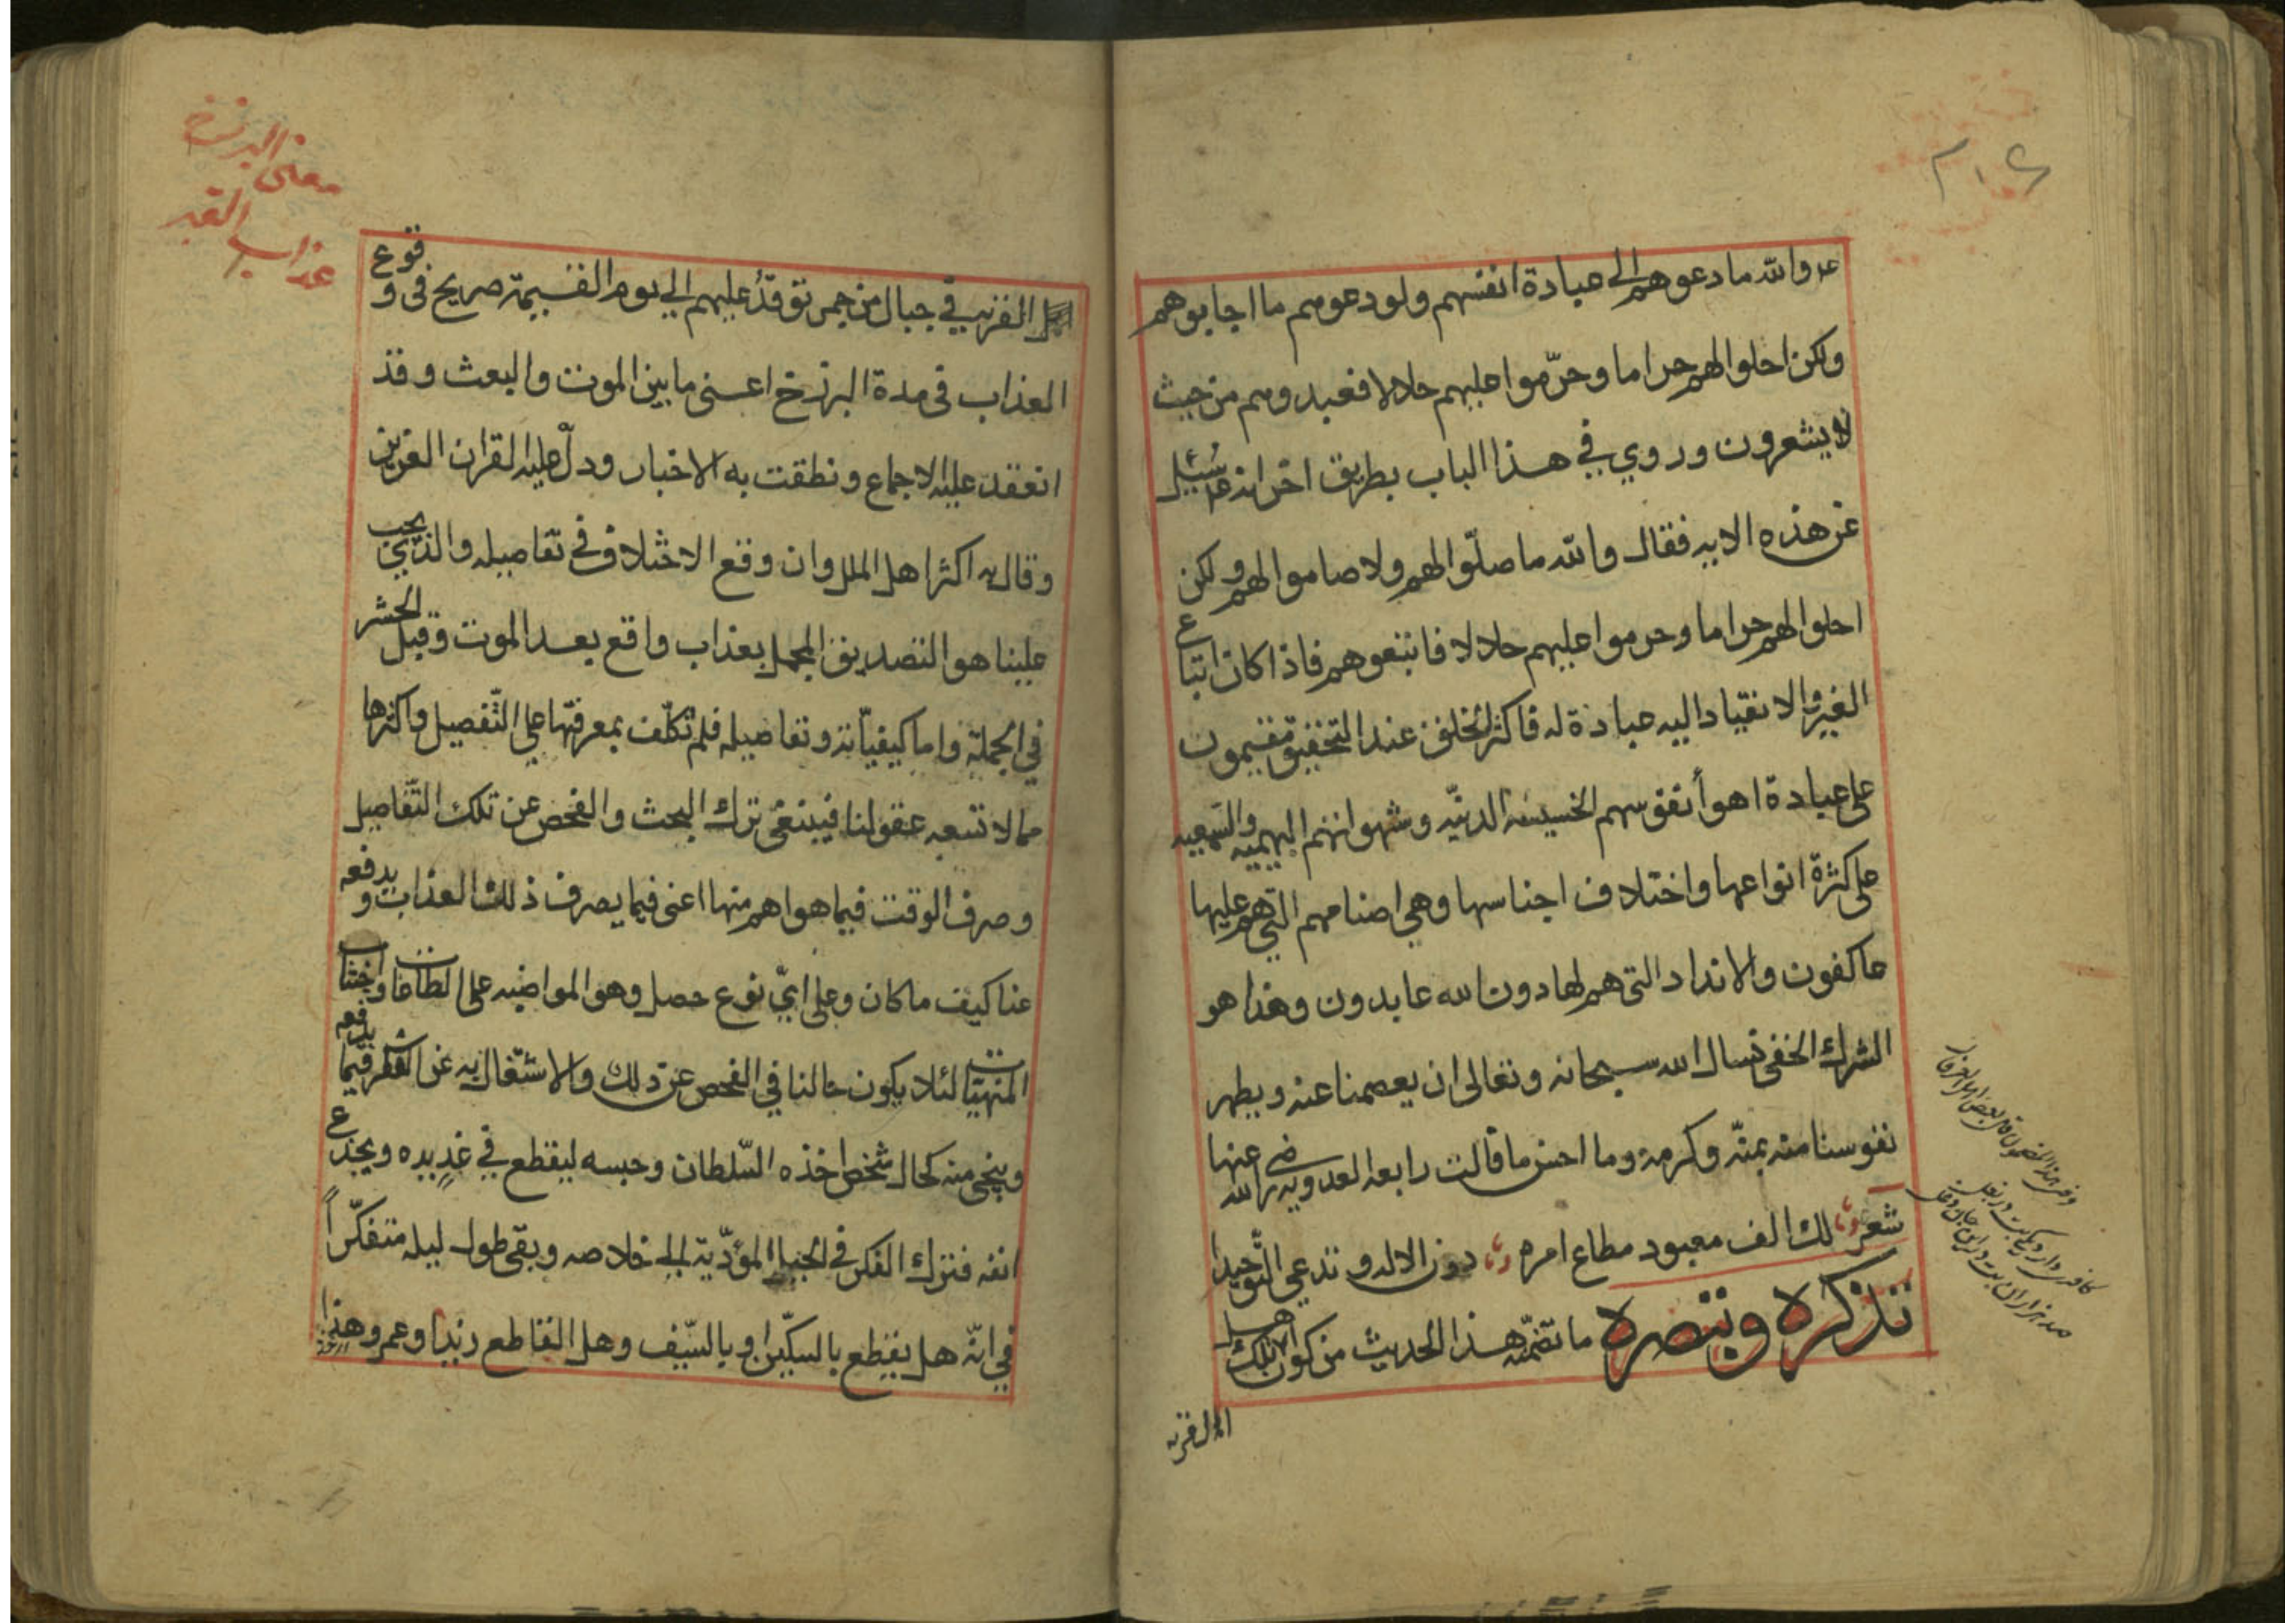 عم والله ما دعوهم الى عبادة انفسهم ولو دعوهم ما اجابوهم
ولكن احلوا لهم حراما وحرّموا عليهم حلالا فعبدوهم من حيث
لا يشعرون وروي في هذا الباب بطريق اخر انه عم سُئِل
عن هذه الايه فقال والله ما صلّوا لهم ولا صاموا لهم ولكن
احلوا لهم حراما وحرموا عليهم حلالا فاتبعوهم فاذا كان اتباع
الغير والانقياد اليه عبادة له فاكثر الخلق عند التحقيق مقيمون
على عبادة اهوأ نفوسهم الخسيسه الدنيّه وشهواتهم البهيميه والسبعيه
على كثرة انواعها واختلاف اجناسها وهي اصنامهم التي هم عليها
عاكفون والانداد التي هم لها دون الله عابدون وهذا هو
الشرك الخفي نسال الله سبحانه وتعالى ان يعصمنا عنه ويطهر
نفوسنا منه بمنّه وكرمه وما احسن ما قالت رابعه العدويه رضي الله عنها
شعر لك الف معبود مطاع امره دون الاله وتدعي التّوحيدا
تذكره وتبصره ما تضمّنه هذا الحديث من كون اهل تلك
القريه
٢٠٤
معنى البرزخ
عذاب القبر
القريه في جبال من جمر توقد عليهم الي يوم القيمة صريح في وقوع
العذاب في مدة البرزخ اعني ما بين الموت والبعث وقد
انعقد عليه الاجماع ونطقت به الاخبار ودلّ عليه القران العزيز
وقال به اكثر اهل الملل وان وقع الاختلاف في تفاصيله والذي يجب
علينا هو التصديق المجمل بعذاب واقع بعد الموت وقبل الحشر
في الجملة واما كيفيّاته وتفاصيله فلم نكلّف بمعرفتها على التّفصيل واكثرها
مما لا تسعه عقولنا فينبغي ترك البحث والفحص عن تلك التّفاصيل
وصرف الوقت فيما هو اهم منها اعني فيما يصرف ذلك العذاب ويدفعه
عنا كيف ما كان وعلى ايّ نوع حصل وهو المواضبه على الطاعات واجتناب
المنهيّات لئلا يكون حالنا في الفحص عن ذلك والاشتغال به عن الفكر فيما يدفعه
وينجي منه كحال شخص اخذه السّلطان وحبسه ليقطع في غدٍ يده ويجدع
انفه فترك الفكر في الحيل المؤدّية الى خلاصه وبقي طول ليله متفكّراً
في انّه هل يقطع بالسكّين او بالسّيف وهل القاطع زيد او عمرو وهذا